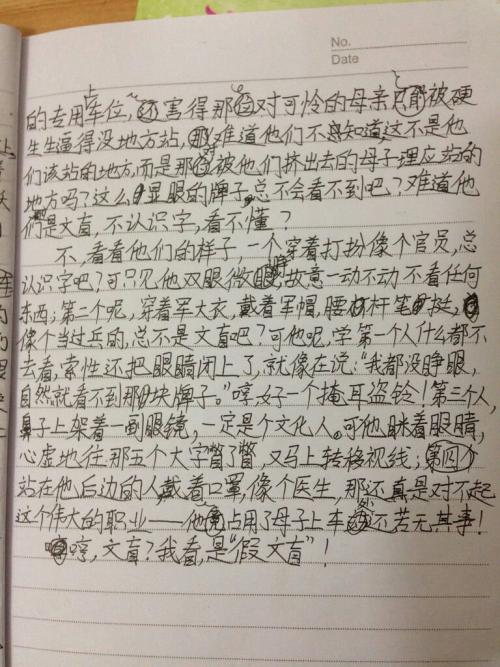 No.
Date
的专用车位,还害得那位对可怜的母亲只能被硬
生生逼得没地方站,难道他们不知道这不是他
们该站的地方,而是那被他们挤出去的母子理应站的
地方吗?这么显眼的牌子,总不会看不到吧?难道他
们是文盲,不认识字,看不懂?
不,看看他们的样子,一个穿着打扮像个官员,总
认识字吧?可只见他双眼微睁,故意一动不动不看任何
东西;第二个呢,穿着军大衣,戴着军帽,腰杆笔挺,
像个当过兵的,总不是文盲吧?可他呢,学第一个人什么都不
去看,索性还把眼睛闭上了,就像在说:“我都没睁眼,
自然就看不到那块牌子。”哼,好一个掩耳盗铃!第三个人,
鼻子上架着一副眼镜,一定是个文化人。可他眯着眼睛,
心虚地往那五个大字瞥了瞥,又马上转移视线;第四个
站在他后边的人戴着口罩,像个医生,那还真是对不起
这个伟大的职业——他占用了母子上车处还若无其事!
哼,文盲?我看,是“假文盲”!